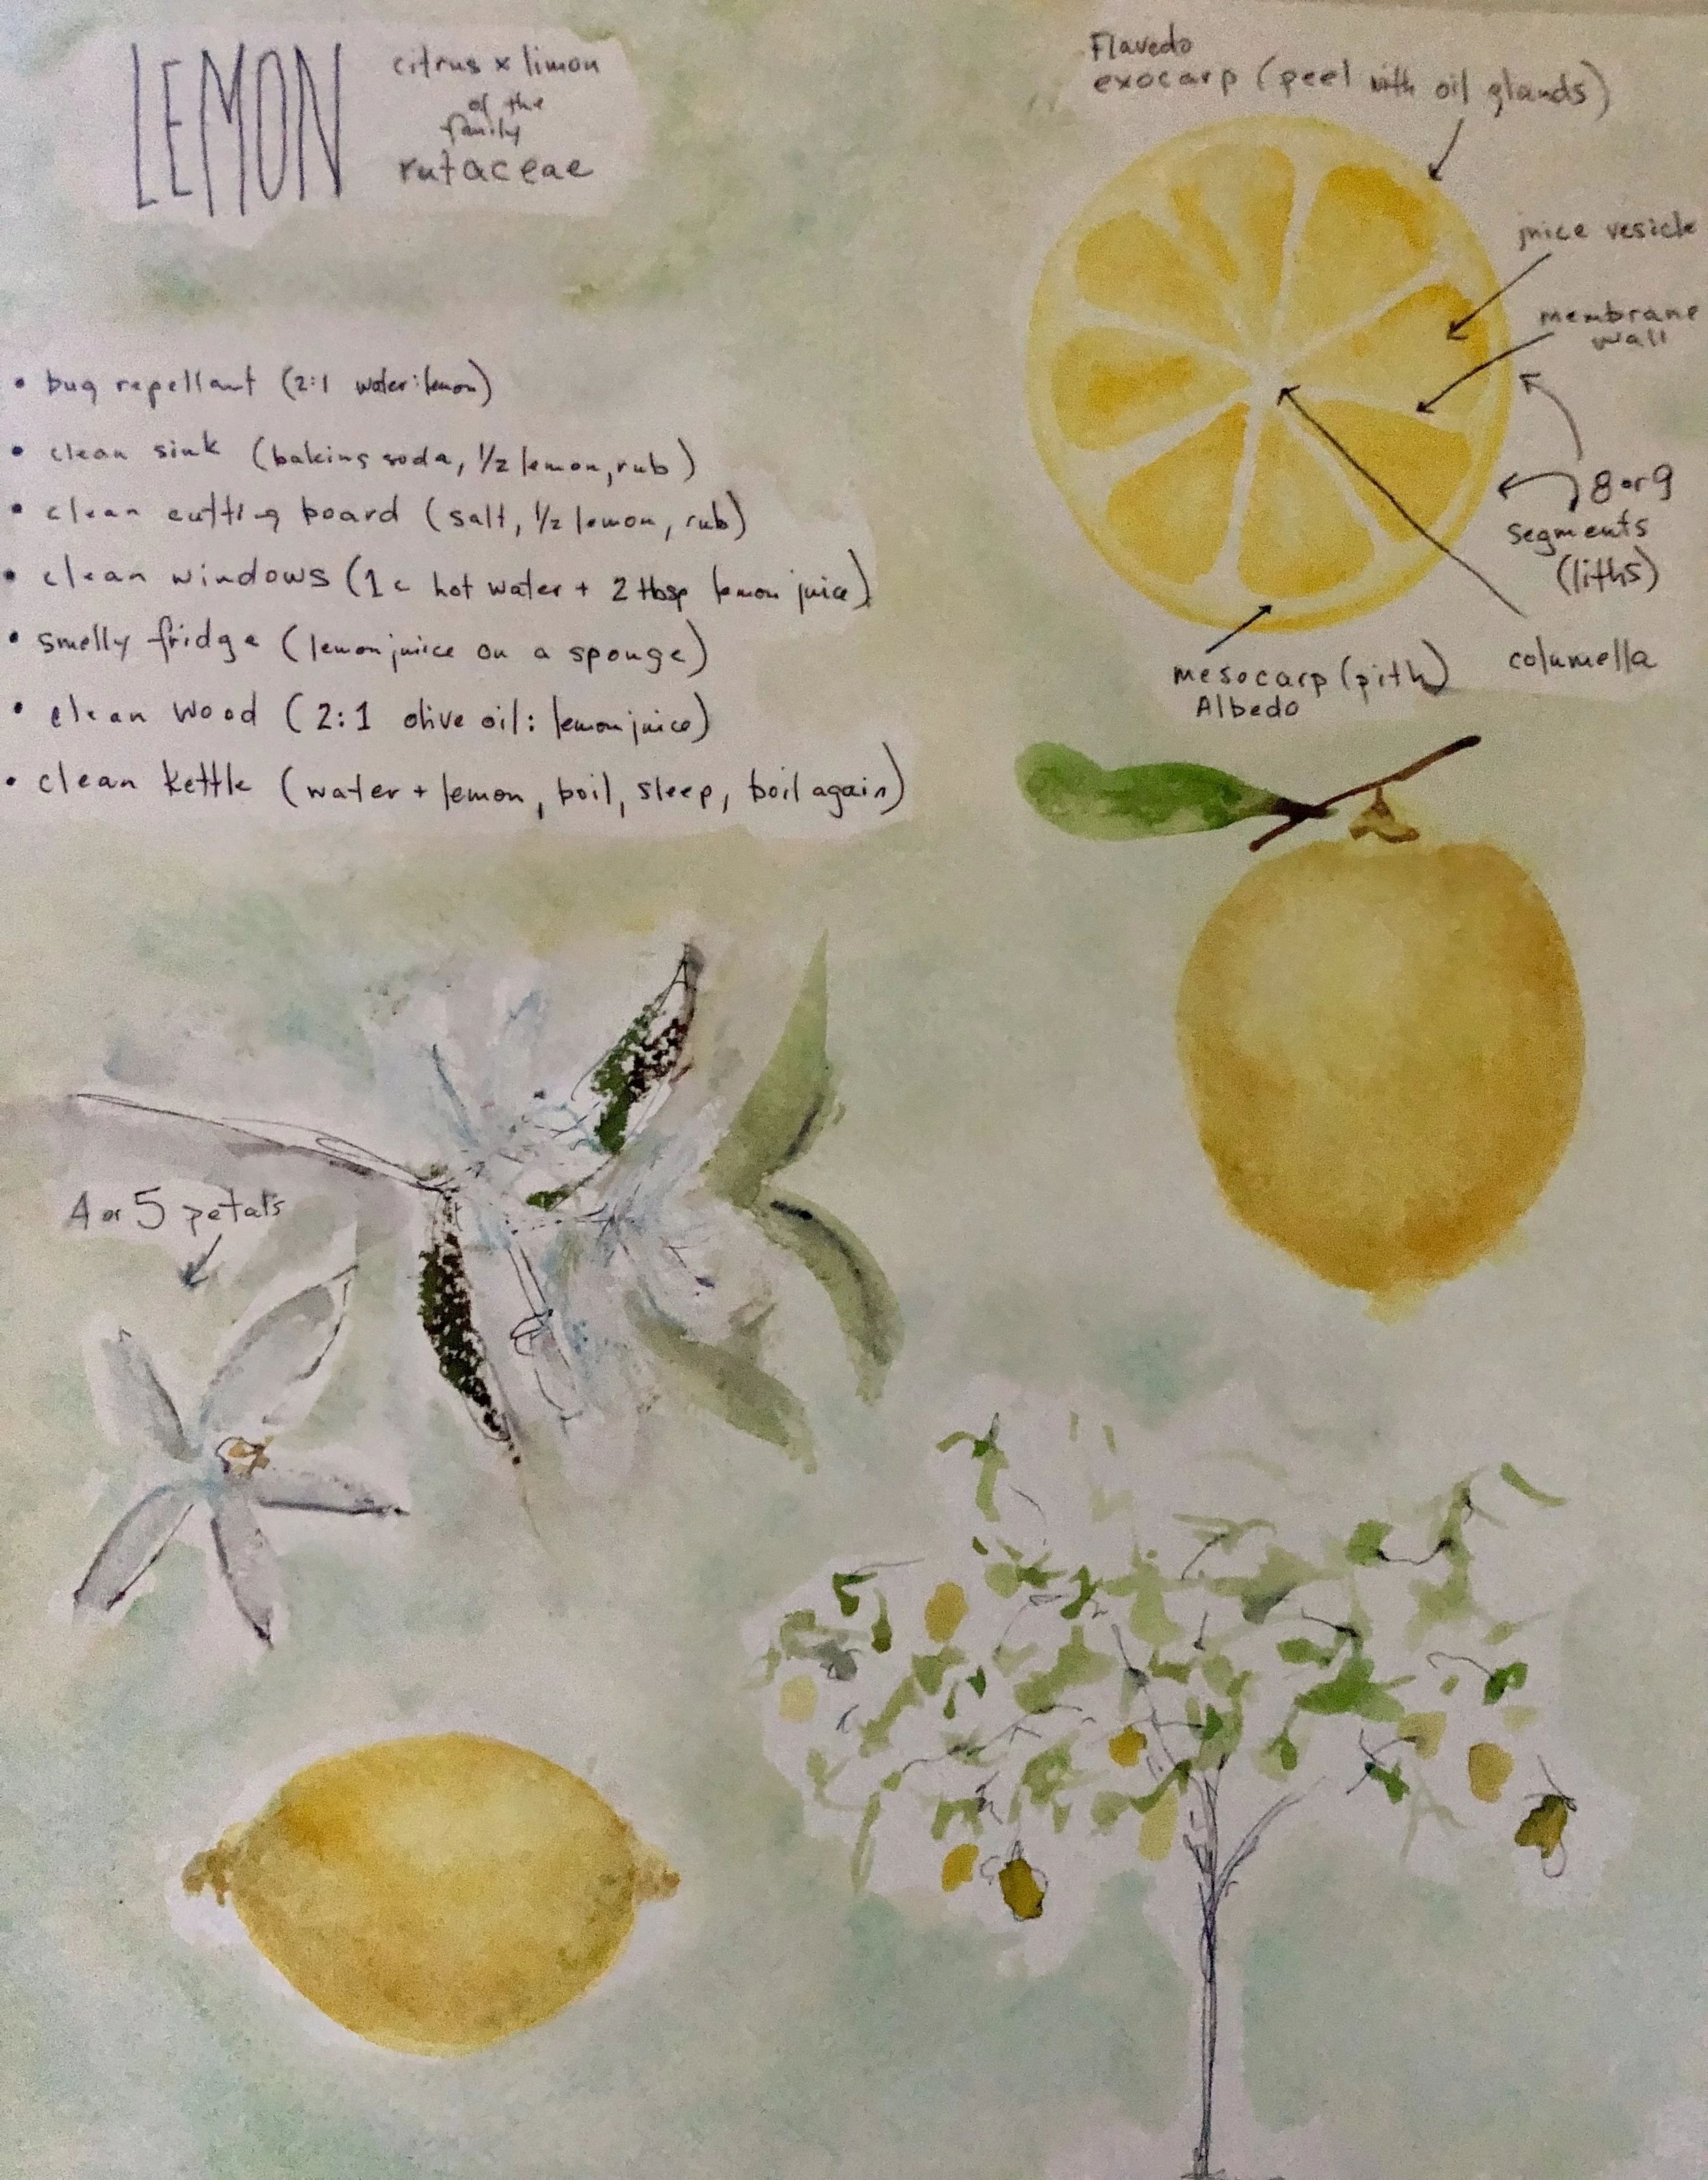 LEMON
citrus x limon
of the
family
rutaceae
• bug repellant (2:1 water:lemon)
• clean sink (baking soda, 1/2 lemon, rub)
• clean cutting board (salt, 1/2 lemon, rub)
• clean windows (1 c hot water + 2 tbsp lemon juice)
• smelly fridge (lemon juice on a sponge)
• clean wood (2:1 olive oil: lemon juice)
• clean kettle (water + lemon, boil, sleep, boil again)
Flavedo
exocarp (peel with oil glands)
juice vesicle
membrane
wall
8 or 9
segments
(liths)
columella
mesocarp (pith)
Albedo
4 or 5 petals